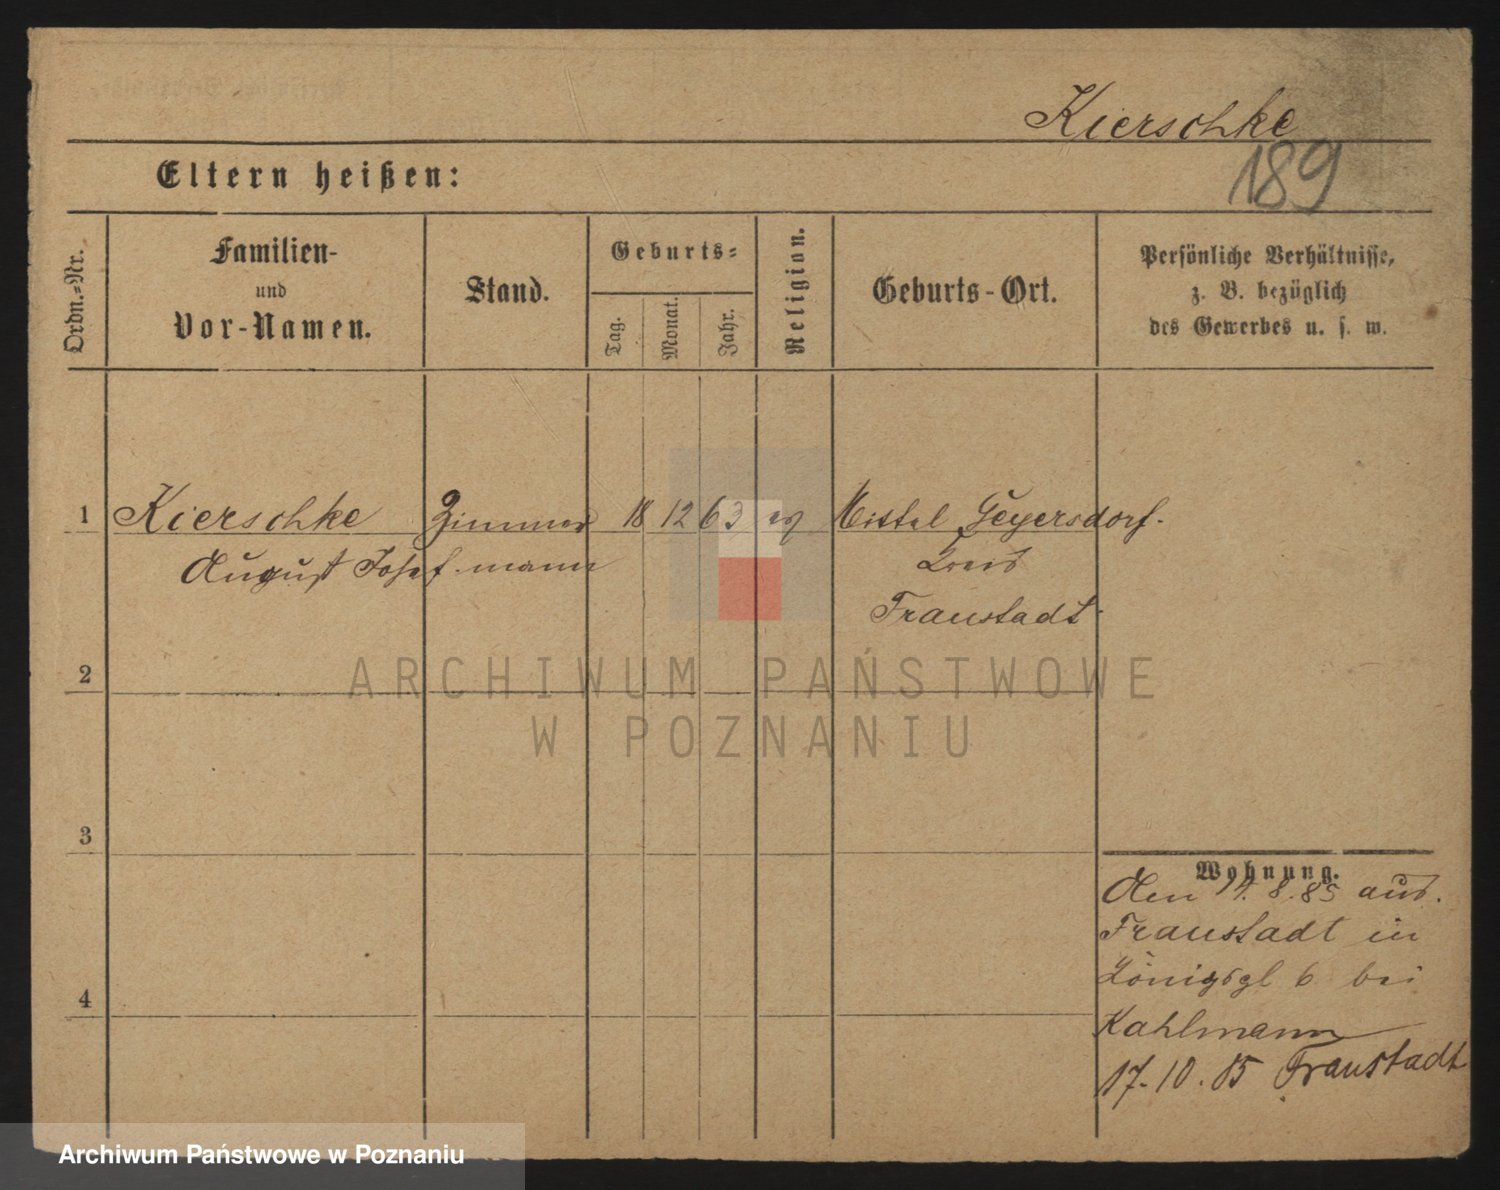 Kierschke
189
Eltern heißen:
Ordn.=Nr.
Familien-
und
Vor-Namen.
Stand.
Geburts=
Tag.
Monat.
Jahr.
Religion.
Geburts-Ort.
Persönliche Verhältnisse,
z. B. bezüglich
des Gewerbes u. s. w.
1 Kierschke Zimmer 18 12 63 ev Mittel Geyersdorf.
August Josef mann Kreis
Fraustadt
2
3
4
Wohnung.
Den 14.8.85 aus.
Fraustadt in
Königsgl 6 bei
Kahlmann
17.10.85 Fraustadt
ARCHIWUM PAŃSTWOWE
W POZNANIU
Archiwum Państwowe w Poznaniu